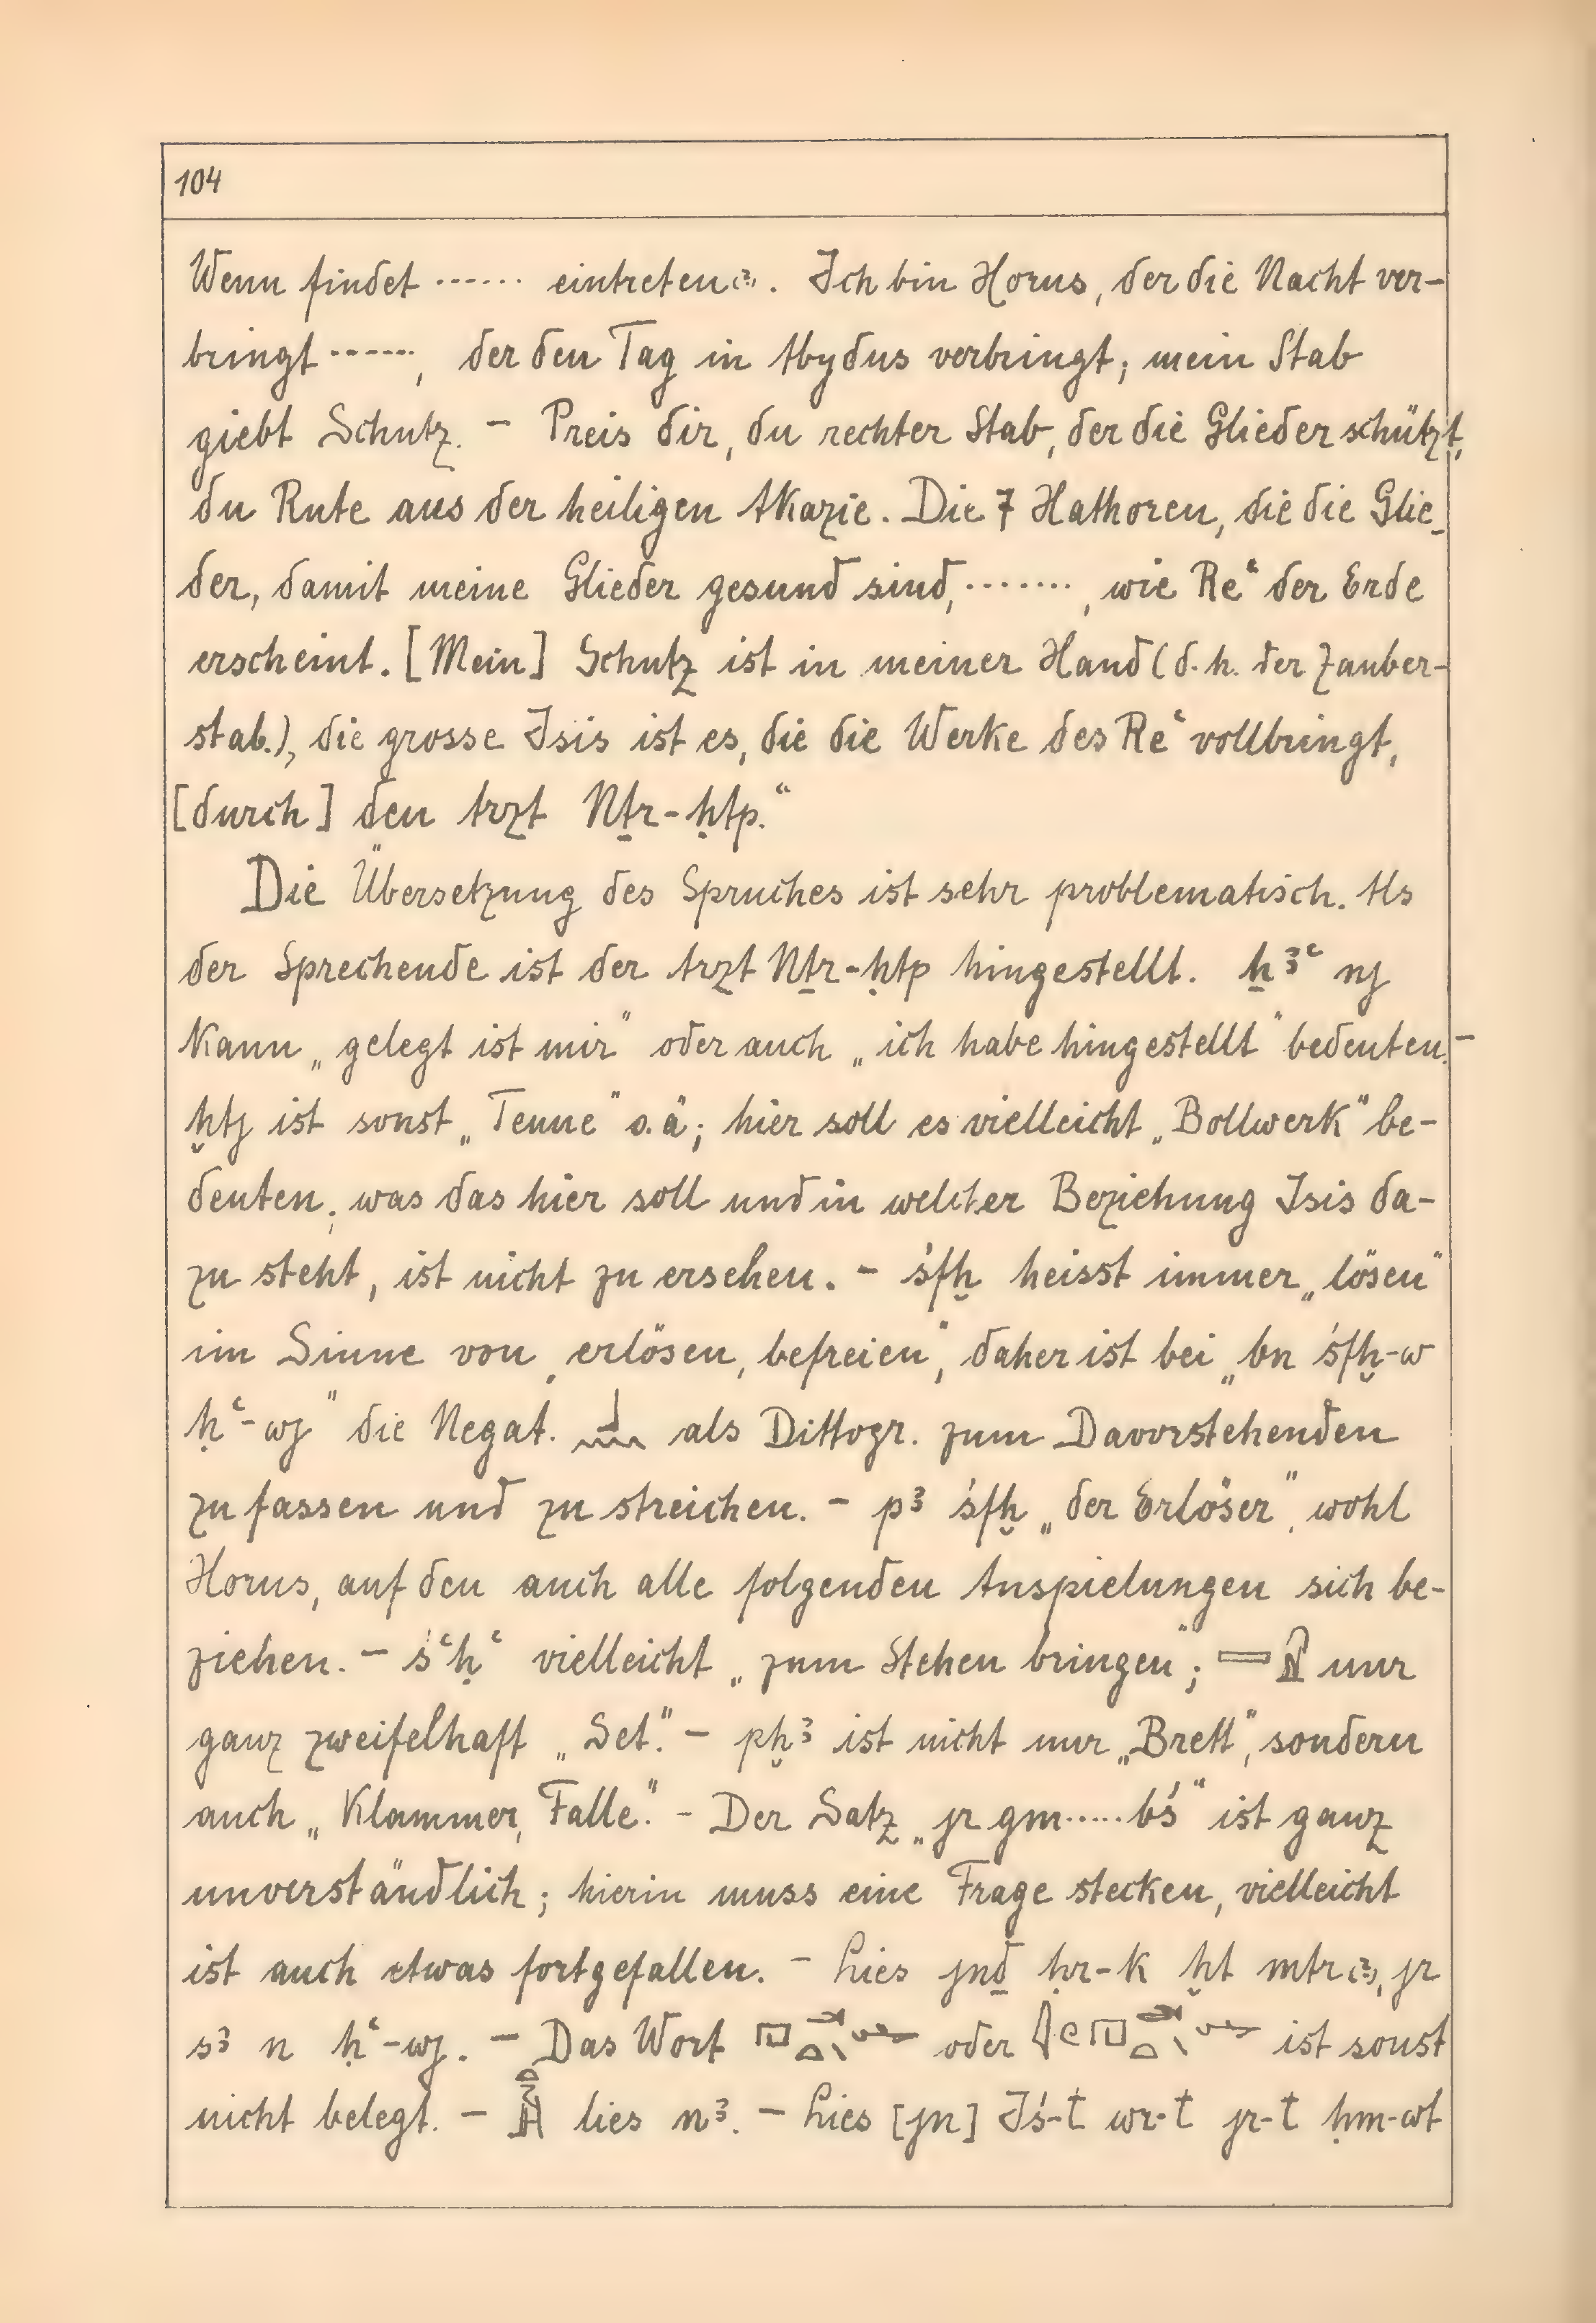 104
Wenn findet ······ eintreten(?). Ich bin Horus, der die Nacht ver-
bringt ······, der den Tag in Abydus verbringt; mein Stab
giebt Schutz. – Preis dir, du rechter Stab, der die Glieder schützt,
du Rute aus der heiligen Akazie. Die 7 Hathoren, die die Glie-
der, damit meine Glieder gesund sind, ········, wie Reʿ der Erde
erscheint. [Mein] Schutz ist in meiner Hand (d. h. der Zauber-
stab.), die grosse Isis ist es, die die Werke des Reʿ vollbringt,
[durch] den Arzt Nṯr-ḥtp.“
Die Übersetzung des Spruches ist sehr problematisch. Als
der Sprechende ist der Arzt Nṯr-ḥtp hingestellt. ẖꜣʿ nj
kann „gelegt ist mir“ oder auch „ich habe hingestellt“ bedeuten. –
ḫtj ist sonst „Tenne“ o. ä; hier soll es vielleicht „Bollwerk“ be-
deuten; was das hier soll und in welcher Beziehung Isis da-
zu steht, ist nicht zu ersehen. – śfḫ heisst immer „lösen“
im Sinne von „erlösen, befreien“, daher ist bei „bn śfḫ-w
ḥʿ-wj“ die Negat. als Dittogr. zum Davorstehenden
zu fassen und zu streichen. – pꜣ śfḫ „der Erlöser“, wohl
Horus, auf den auch alle folgenden Anspielungen sich be-
ziehen. – śʿḥʿ vielleicht „zum Stehen bringen“; nur
ganz zweifelhaft „Set.“ – pḫꜣ ist nicht nur „Brett“, sondern
auch „Klammer, Falle.“ – Der Satz „jr gm ····· bś“ ist ganz
unverständlich; hierin muss eine Frage stecken, vielleicht
ist auch etwas fortgefallen. – Lies jnḏ ḥr-k ḫt mtr(?), jr
sꜣ n ḥʿ-wj. – Das Wort oder ist sonst
nicht belegt. – lies nꜣ. – Lies [jn] Iś-t wr-t jr-t ḥm-wt